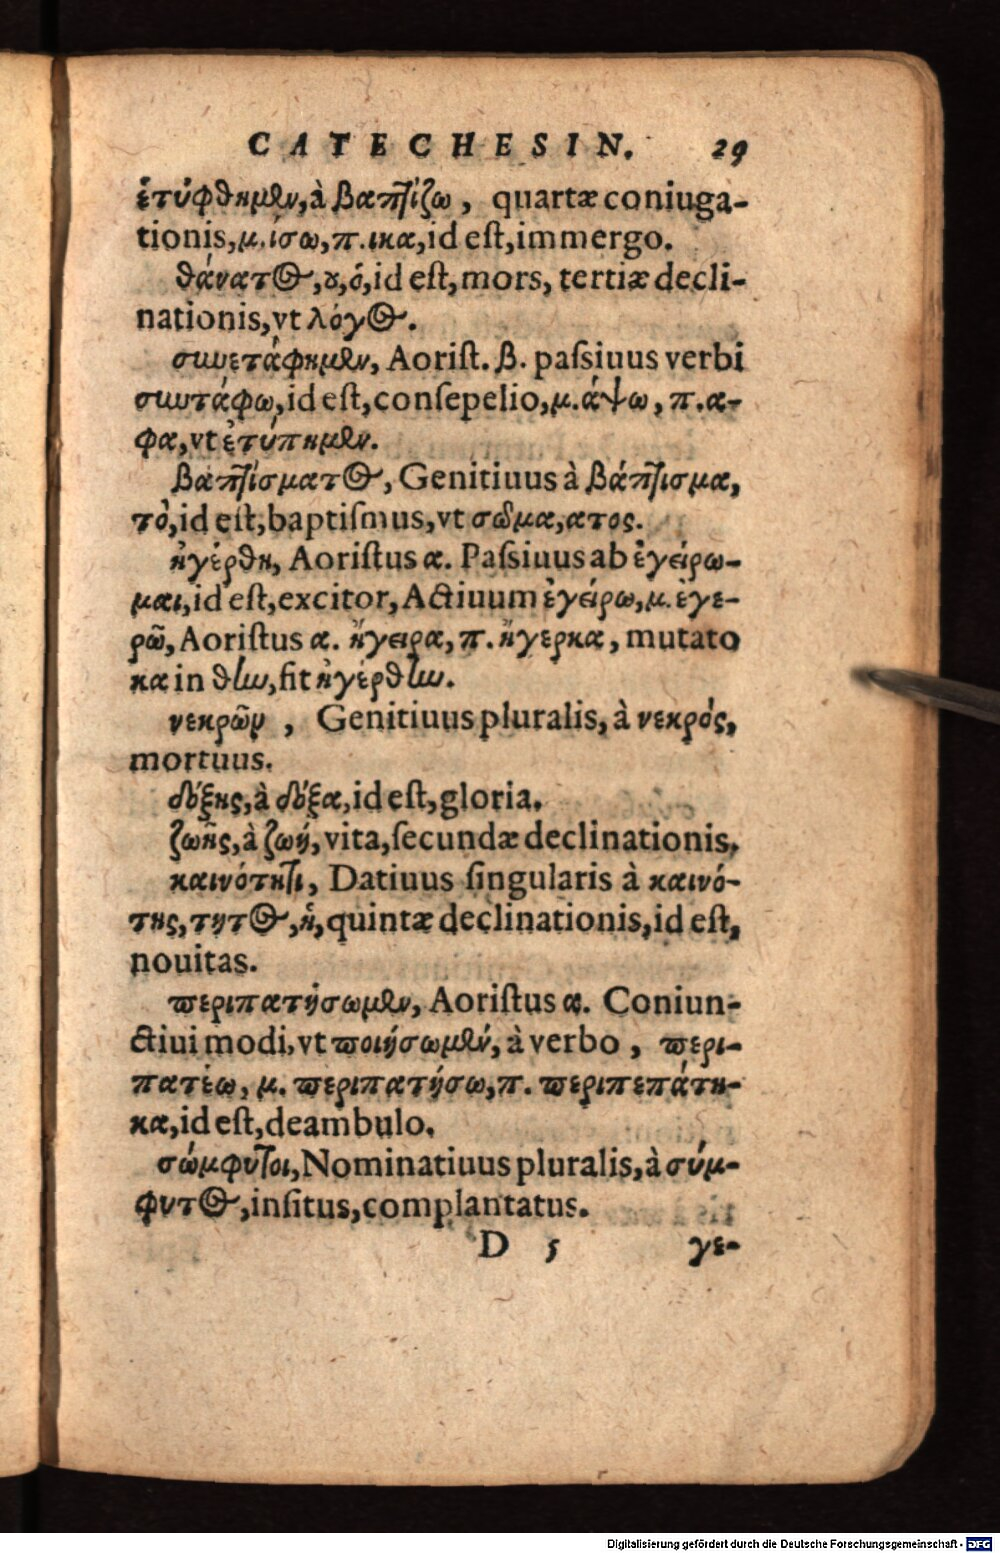 CATECHESIN. 29
ἐτύφθημεν, à βαπτίζω, quartæ coniuga-
tionis, μ. ίσω, π. ικα, id eſt, immergo.
θάνατος, ȣ, ὁ, id eſt, mors, tertiæ decli-
nationis, vt λόγος.
συνετάφημεν, Aoriſt. β. paſsiuus verbi
συντάφω, id eſt, conſepelio, μ. άψω, π. α-
φα, vt ἐτύπημεν.
βαπτίσματος, Genitiuus à βάπτισμα,
τὸ, id eſt, baptiſmus, vt σῶμα, ατος.
ἠγέρθη, Aoriſtus α. Paſsiuus ab ἐγείρω-
μαι, id eſt, excitor, Actiuum ἐγείρω, μ. ἐγε-
ρῶ, Aoriſtus α. ἤγειρα, π. ἤγερκα, mutato
κα in θην, fit ἠγέρθην.
νεκρῶν, Genitiuus pluralis, à νεκρός,
mortuus.
δόξης, à δόξα, id eſt, gloria.
ζωῆς, à ζωή, vita, ſecundæ declinationis.
καινότητι, Datiuus ſingularis à καινό-
της, τητος, ἡ, quintæ declinationis, id eſt,
nouitas.
περιπατήσωμεν, Aoriſtus α. Coniun-
ctiui modi, vt ποιήσωμεν, à verbo, περι-
πατέω, μ. περιπατήσω, π. περιπεπάτη-
κα, id eſt, deambulo.
σώμφυτοι, Nominatiuus pluralis, à σύμ-
φυτος, inſitus, complantatus.
D 5 γε-
Digitalisierung gefördert durch die Deutsche Forschungsgemeinschaft - DFG